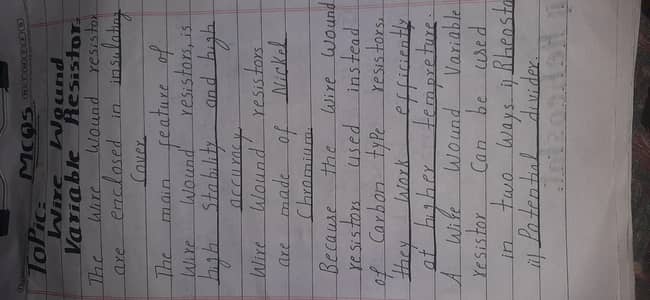 Topic: MCQS
Wire Wound
Variable Resistor.
The Wire Wound resistor
are enclosed in insulating
Cover
The main feature of
Wire Wound resistors, is
high Stability and high
accuracy.
Wire Wound resistors
are made of Nickel
Chromium.
Because the Wire Wound
resistors used instead
of Carbon type resistors.
they Work efficiently
at higher tempreture.
A Wire Wound Variable
resistor Can be used
in two ways i) Rheosta
ii) Potential divider.